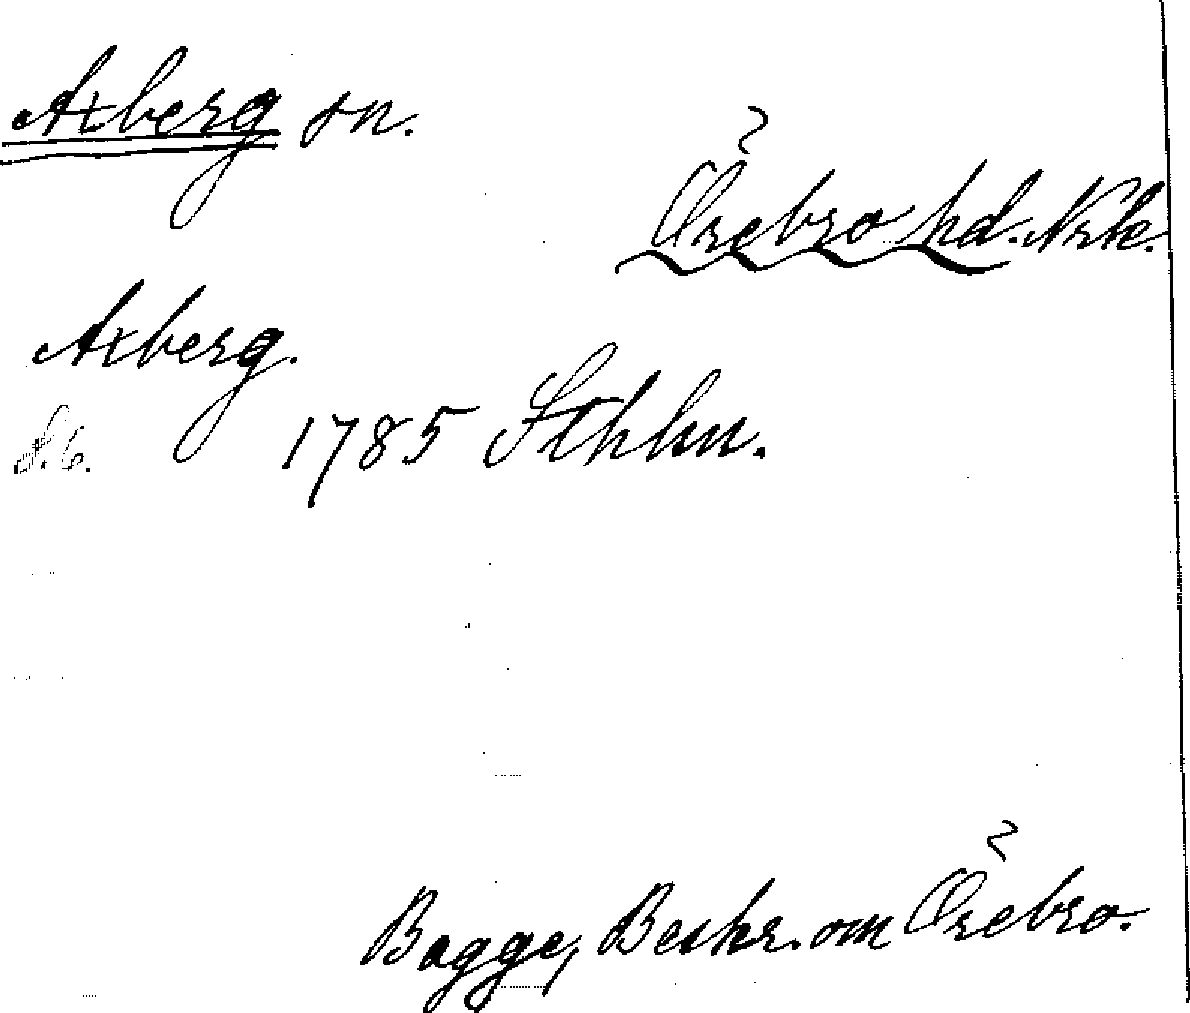 Axberg sn.
Örebro hd. Nrke.
Axberg.
1785 Sthlm.
Bagge, Beskr. om Örebro.